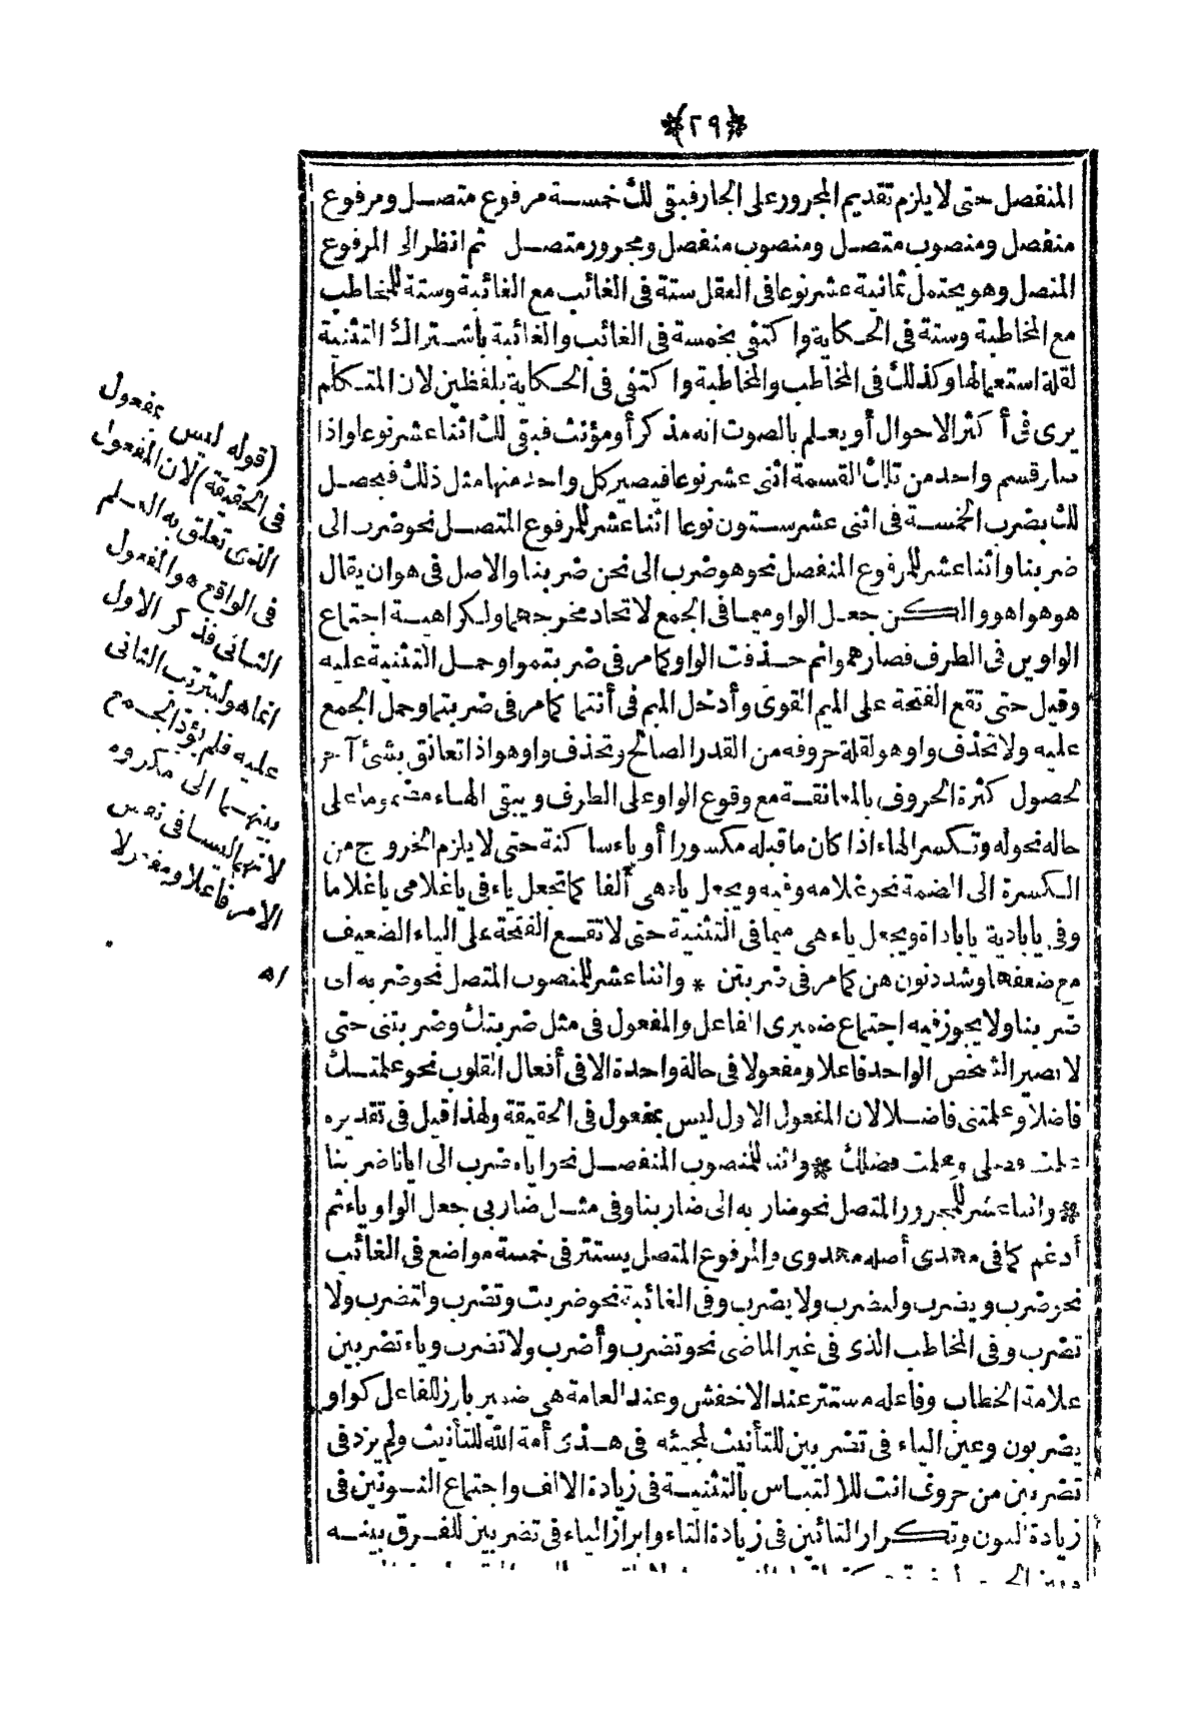 ﴿٢٩﴾
المنفصل حتى لا يلزم تقديم المجرور على الجار فبقى لك خمسة مرفوع متصل ومرفوع
منفصل ومنصوب متصل ومنصوب منفصل ومجرور متصل ثم انظر الى المرفوع
المتصل وهو يحتمل ثمانية عشر نوعا فى العقل ستة فى الغائب مع الغائبة وستة للمخاطب
مع المخاطبة وستة فى الحكاية واكتفى بخمسة فى الغائب والغائبة باشتراك التثنية
لقلة استعمالها وكذلك فى المخاطب والمخاطبة واكتفى فى الحكاية بلفظين لان المتكلم
يرى فى أكثر الاحوال أو يعلم بالصوت انه مذكر أو مؤنث فبقى لك اثنا عشر نوعا واذا
صار قسم واحد من تلك القسمة اثنى عشر نوعا فيصير كل واحد منها مثل ذلك فيحصل
لك بضرب الخمسة فى اثنى عشر ستون نوعا اثنا عشر للمرفوع المتصل نحو ضرب الى
ضربنا واثنا عشر للمرفوع المنفصل نحو هو ضرب الى نحن ضربنا والاصل فى هو ان يقال
هو هوا هوو الكن جعل الواو ميما فى الجمع لاتحاد مخرجهما ولكراهية اجتماع
الواوين فى الطرف فصار هموا ثم حذفت الواو كما مر فى ضربتموا وحمل التثنية عليه
وقيل حتى تقع الفتحة على الميم القوى وأدخل الميم فى أنتما كما مر فى ضربتما وحمل الجمع
عليه ولا تحذف واو هو لقلة حروفه من القدر الصالح وتحذف واو هو اذا تعانق بشئ آخر
لحصول كثرة الحروف بالمعانقة مع وقوع الواو على الطرف ويبقى الهاء مضموما على
حاله نحو له وتكسر الهاء اذا كان ما قبله مكسورا أو ياء ساكنة حتى لا يلزم الخروج من
الكسرة الى الضمة نحو غلامه وفيه ويجعل ياء هى ألفا كما تجعل ياء فى ياغلامى ياغلاما
وفى يابادية ياباداة ويجعل ياء هى ميما فى التثنية حتى لا تقع الفتحة على الياء الضعيف
مع ضعفها وشدد نون هن كما مر فى ضربتن * واثنا عشر للمنصوب المتصل نحو ضربه اى
ضربنا ولا يجوز فيه اجتماع ضميرى الفاعل والمفعول فى مثل ضربتك وضربتنى حتى
لا يصير الشخص الواحد فاعلا ومفعولا فى حالة واحدة الا فى أفعال القلوب نحو علمتك
فاضلا وعلمتنى فاضلا لان المفعول الاول ليس بمفعول فى الحقيقة ولهذا قيل فى تقديره
علمت فضلى وعلمت فضلك * واثنا للمنصوب المنفصل نحو اياه ضرب الى ايانا ضربنا
* واثنا عشر للمجرور المتصل نحو ضاربه الى ضاربنا وفى مثل ضاربى جعل الواو ياء ثم
أدغم كما فى مهدى أصله مهدوى والمرفوع المتصل يستتر فى خمسة مواضع فى الغائب
نحو ضرب ويضرب وليضرب ولا يضرب وفى الغائبة نحو ضربت وتضرب ولتضرب ولا
تضرب وفى المخاطب الذى فى غير الماضى نحو تضرب وأضرب ولا تضرب وياء تضربين
علامة الخطاب وفاعله مستتر عند الاخفش وعند العامة هى ضمير بارز للفاعل كواو
يضربون وعين الياء فى تضربين للتأنيث لمجيئه فى هذى أمة الله للتأنيث ولم يزد فى
تضربين من حروف انت للالتباس بالتثنية فى زيادة الالف واجتماع النونين فى
زيادة النون وتكرار التائين فى زيادة التاء وابراز الياء فى تضربين للفرق بينه
(قوله ليس بمفعول
فى الحقيقة) لان المفعول
الذى تعلق به العلم
فى الواقع هو المفعول
الثانى فذكر الاول
انما هو ليترتب الثانى
عليه فلم يؤد الجمع
بينهما الى مكروه
لانهما ليسا فى نفس
الامر فاعلا ومفعولا
اه